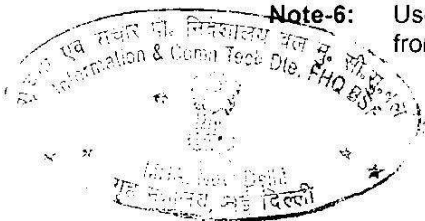 Note-6: Us
fron
एवं संचार प्रौ. निदेशालय बल मु. सी.सु.
Information & Comn Tech Dte. FHQ BSF
MHA, New Delhi
गृह मंत्रालय, नई दिल्ली